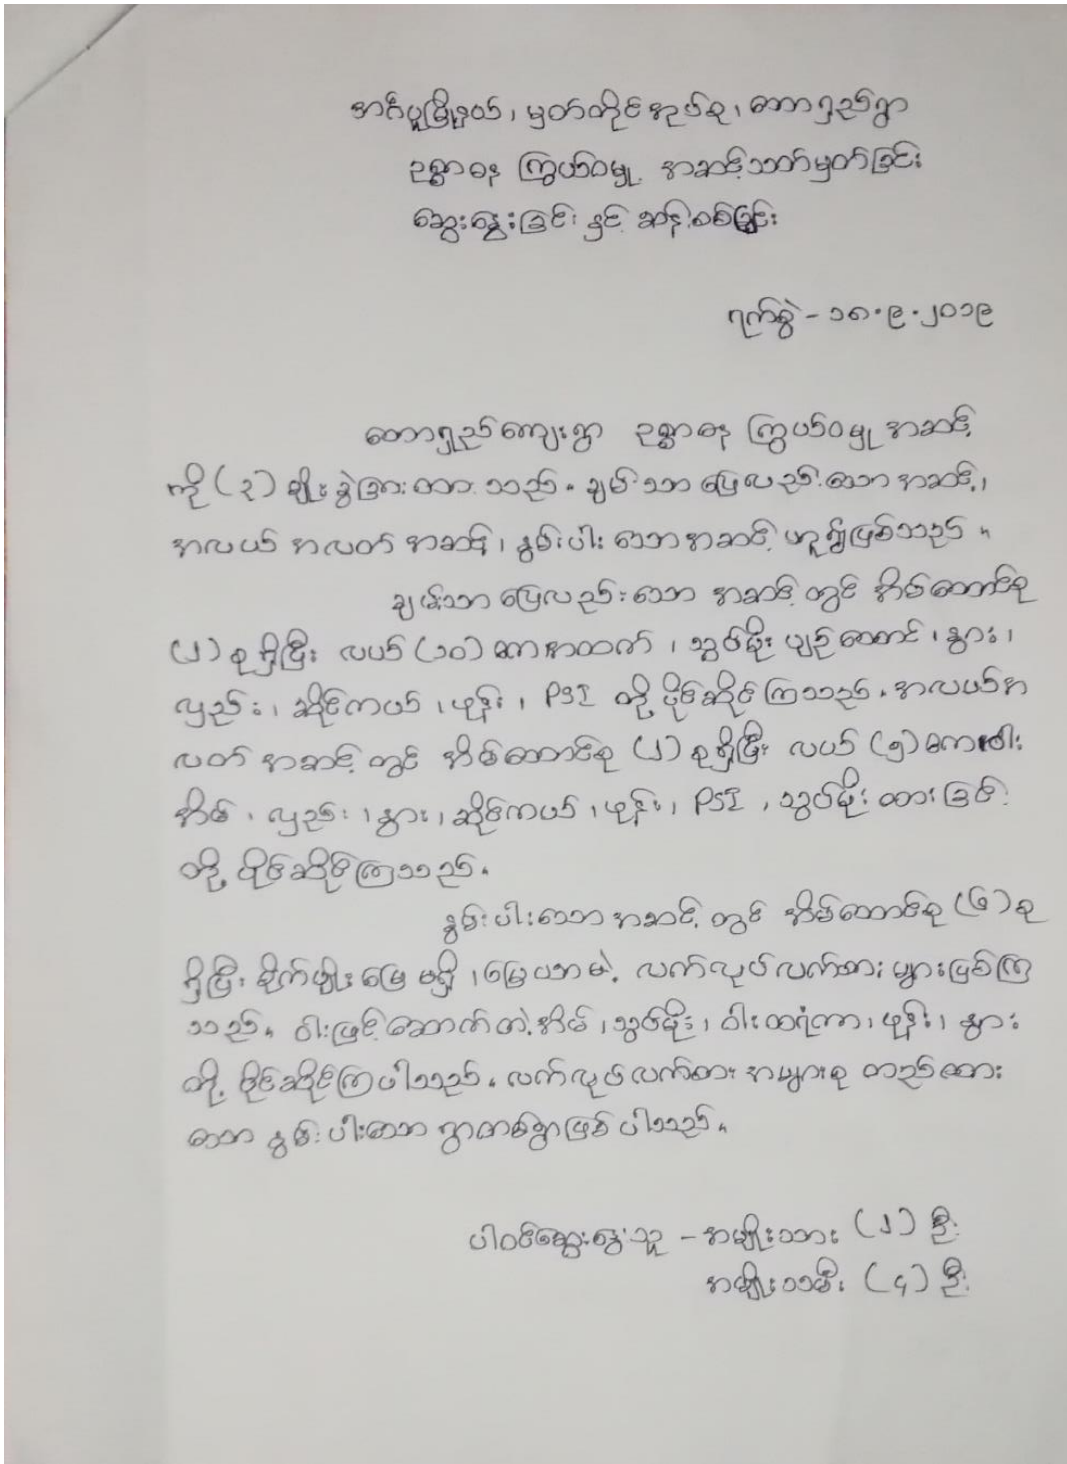 အင်္ဂပူမြို့နယ်၊ မှတ်တိုင်အုပ်စု၊ တောရှည်ရွာ
ဥစ္စာဓန ကြွယ်ဝမှု အဆင့်သတ်မှတ်ခြင်း
ဆွေးနွေးခြင်း နှင့် ဆန်းစစ်ခြင်း
ရက်စွဲ - ၁၈.၉.၂၀၁၉
တောရှည်ကျေးရွာ ဥစ္စာဓန ကြွယ်ဝမှု အဆင့်
ကို (၃) မျိုး ခွဲခြားထား သည်။ ချမ်းသာ ပြေလည်သော အဆင့်၊
အလယ် အလတ် အဆင့်၊ နွမ်းပါး သောအဆင့် ဟူ၍ဖြစ်သည်။
ချမ်းသာ ပြေလည်းသော အဆင့် တွင် အိမ်ထောင်စု
(၂) စုရှိပြီး လယ် (၁၀) ဧကအထက် ၊ သွပ်မိုး ပျဉ်ထောင် ၊ နွား ၊
လှည်း ၊ ဆိုင်ကယ် ၊ ဖုန်း ၊ PSI တို့ ပိုင်ဆိုင်ကြသည်။ အလယ်အ
လတ် အဆင့် တွင် အိမ်ထောင်စု (၂) စုရှိပြီး လယ် (၅) ဧက ဝါး
အိမ် ၊ လှည်း ၊ နွား ၊ ဆိုင်ကယ် ၊ ဖုန်း ၊ PSI ၊ သွပ်မိုး ထားခြင်း
တို့ ပိုင်ဆိုင်ကြသည်။
နွမ်းပါးသော အဆင့် တွင် အိမ်ထောင်စု (၆) စု
ရှိပြီး စိုက်ပျိုးမြေ မရှိ ၊ မြေယာမဲ့ လက်လုပ်လက်စား များဖြစ်ကြ
သည်။ ဝါးဖြင့်ဆောက်တဲ့အိမ် ၊ သွပ်မိုး ၊ ဝါးထရံကာ ၊ ဖုန်း ၊ နွား
တို့ ပိုင်ဆိုင်ကြပါသည်။ လက်လုပ်လက်စား အများစု တည်ထား
သော နွမ်းပါးသော ရွာတစ်ရွာဖြစ်ပါသည်။
ပါဝင်ဆွေးနွေးသူ - အမျိုးသား (၂) ဦး
အမျိုးသမီး (၄) ဦး